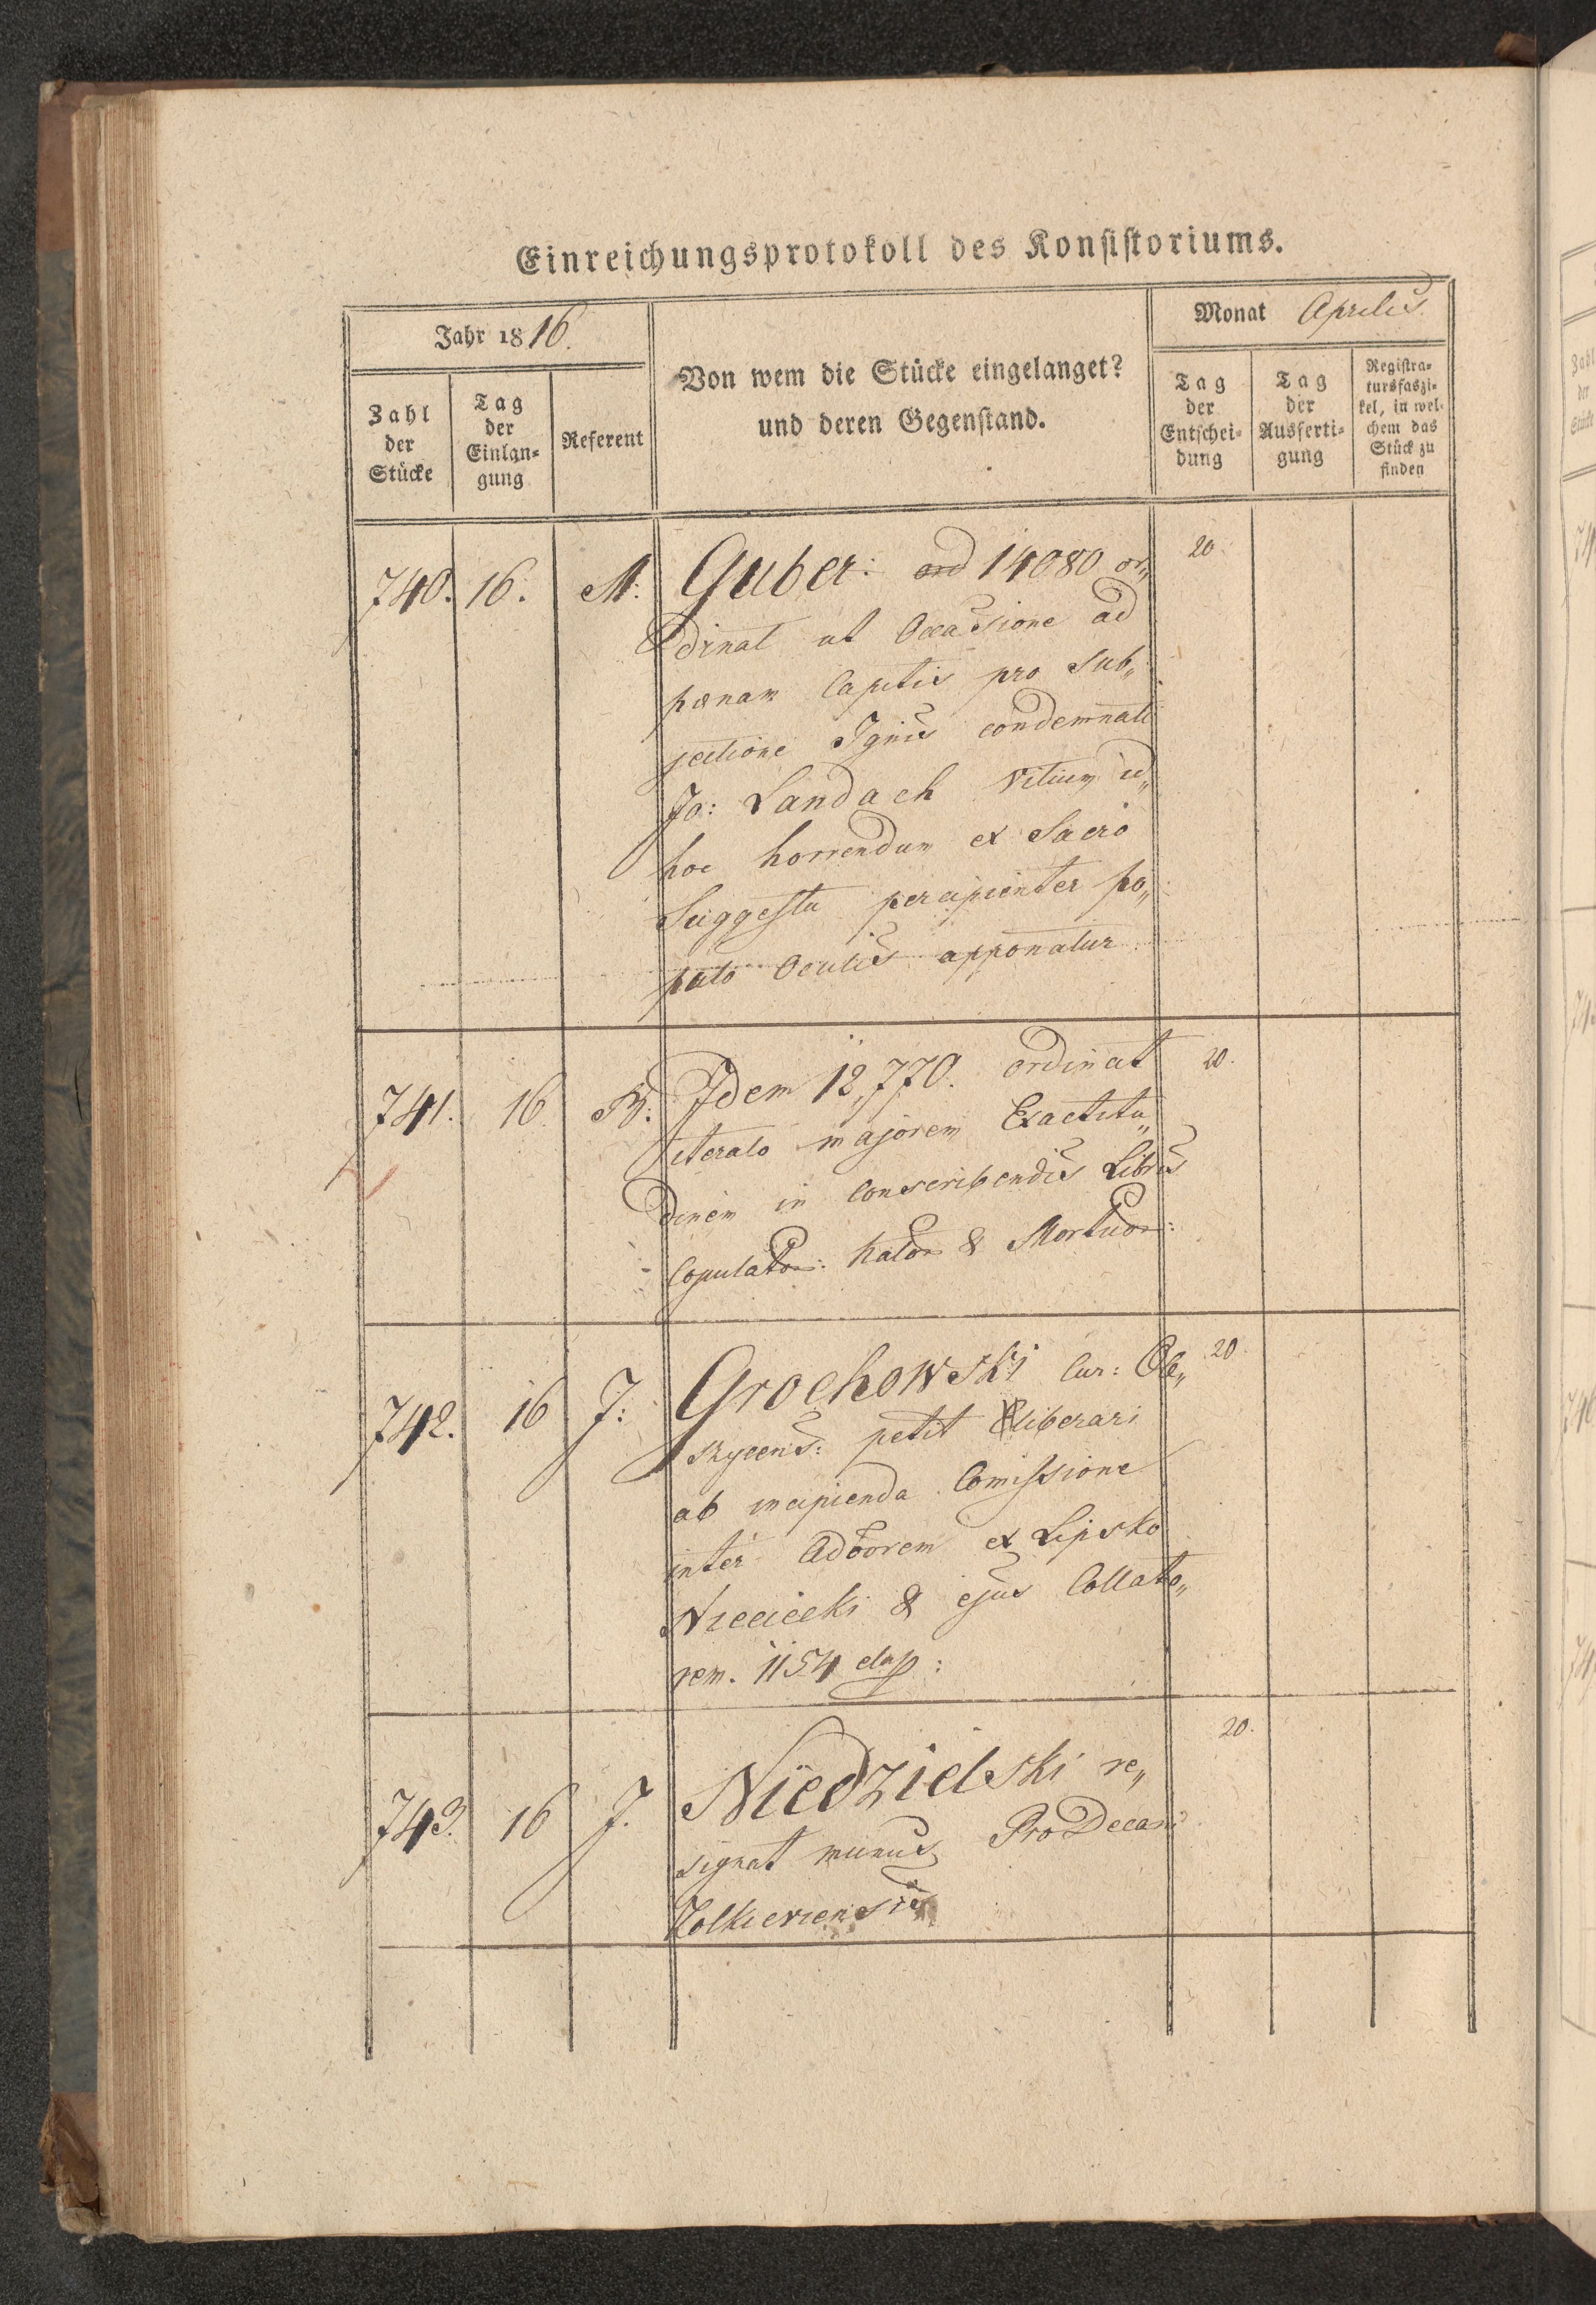 Einreichungsprotokoll des Konsistoriums.
Jahr 1816.
Monat Aprilis
Zahl der Stücke
Tag der Einlan=gung
Referent
Von wem die Stücke eingelanget?
und deren Gegenstand.
Tag der Entschei=dung
Tag der Ausferti=gung
Registra=tursfaszi=kel, in wel=chem das Stück zu finden
740. 16. M. Guber: ord 14080 or„ 20.
dinat ut Occasione ad
pœnam Capitis pro sub„
jectione Ignis condemnati
Jo: Landach vitium
hoc horrendum ex Sacro
Suggestu percipienter po„
pulo Oculis apponatur
741. 16 Idem 12,770. ordinat 20.
iterato majorem Exactitu„
dinem in Conscribendis Libris
Copulator: Nator & Mortuor:
742. 16 J: Grochowski Cur: Ole„ 20
szycens: petit liberari
ab incipienda Comissione
inter Adōorem ex Lipsko
Niecielki & ejus Collato„
rem. 1154 elap:
743. 16 J. Niedzielski re„ 20.
signat munus ProDecani
Zolkieviensis